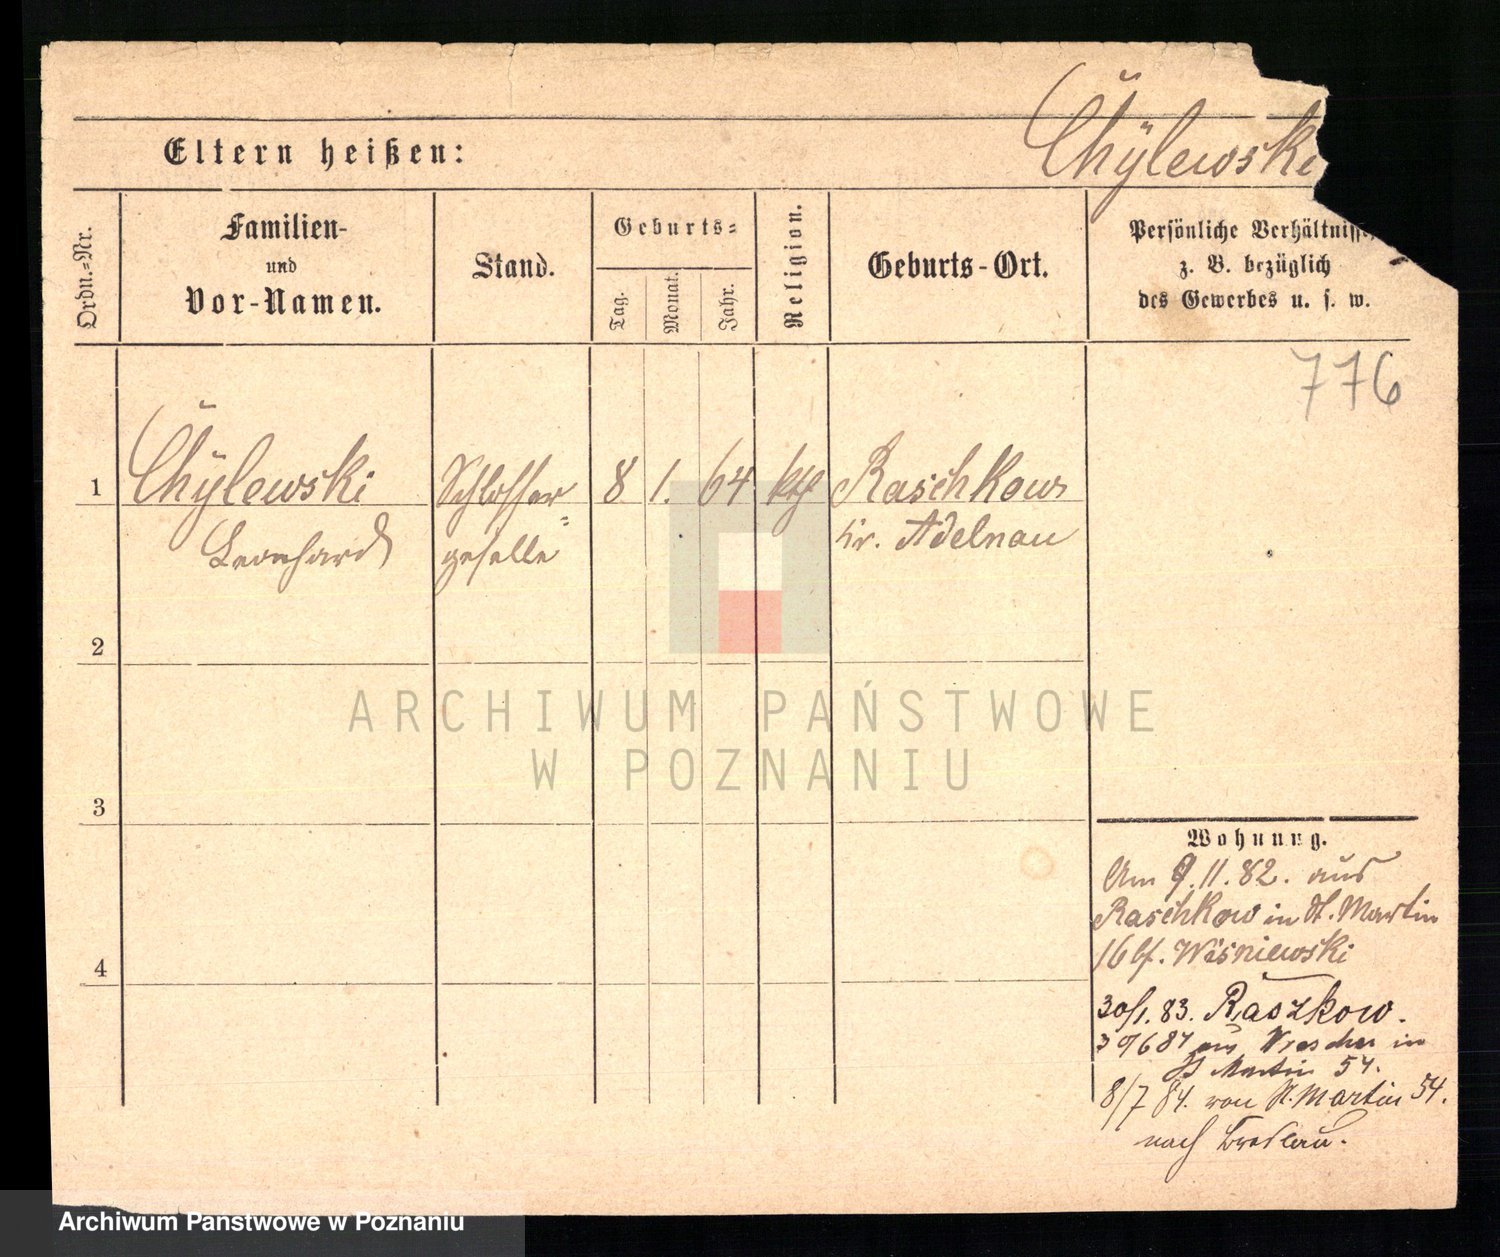 Chÿlewski
Eltern heißen:
Ordn.-Nr.
Familien-
und
Vor-Namen.
Stand.
Geburts-
Tag.
Monat.
Jahr.
Religion.
Geburts-Ort.
Persönliche Verhältnisse,
z. B. bezüglich
des Gewerbes u. s. w.
776
1 Chÿlewski Schlosser= 8 1. 64 kth Raschkow
Leonhard geselle Kr. Adelnau
2
3
4
Wohnung.
Am 9.11.82. aus
Raschkow in St. Martin
16 bf. Wiśniewski
30/1. 83. Raszkow.
aus Wreschen in
St Martin 54.
8/7 84. von St. Martin 54.
nach Breslau.
ARCHIWUM PAŃSTWOWE
W POZNANIU
Archiwum Państwowe w Poznaniu